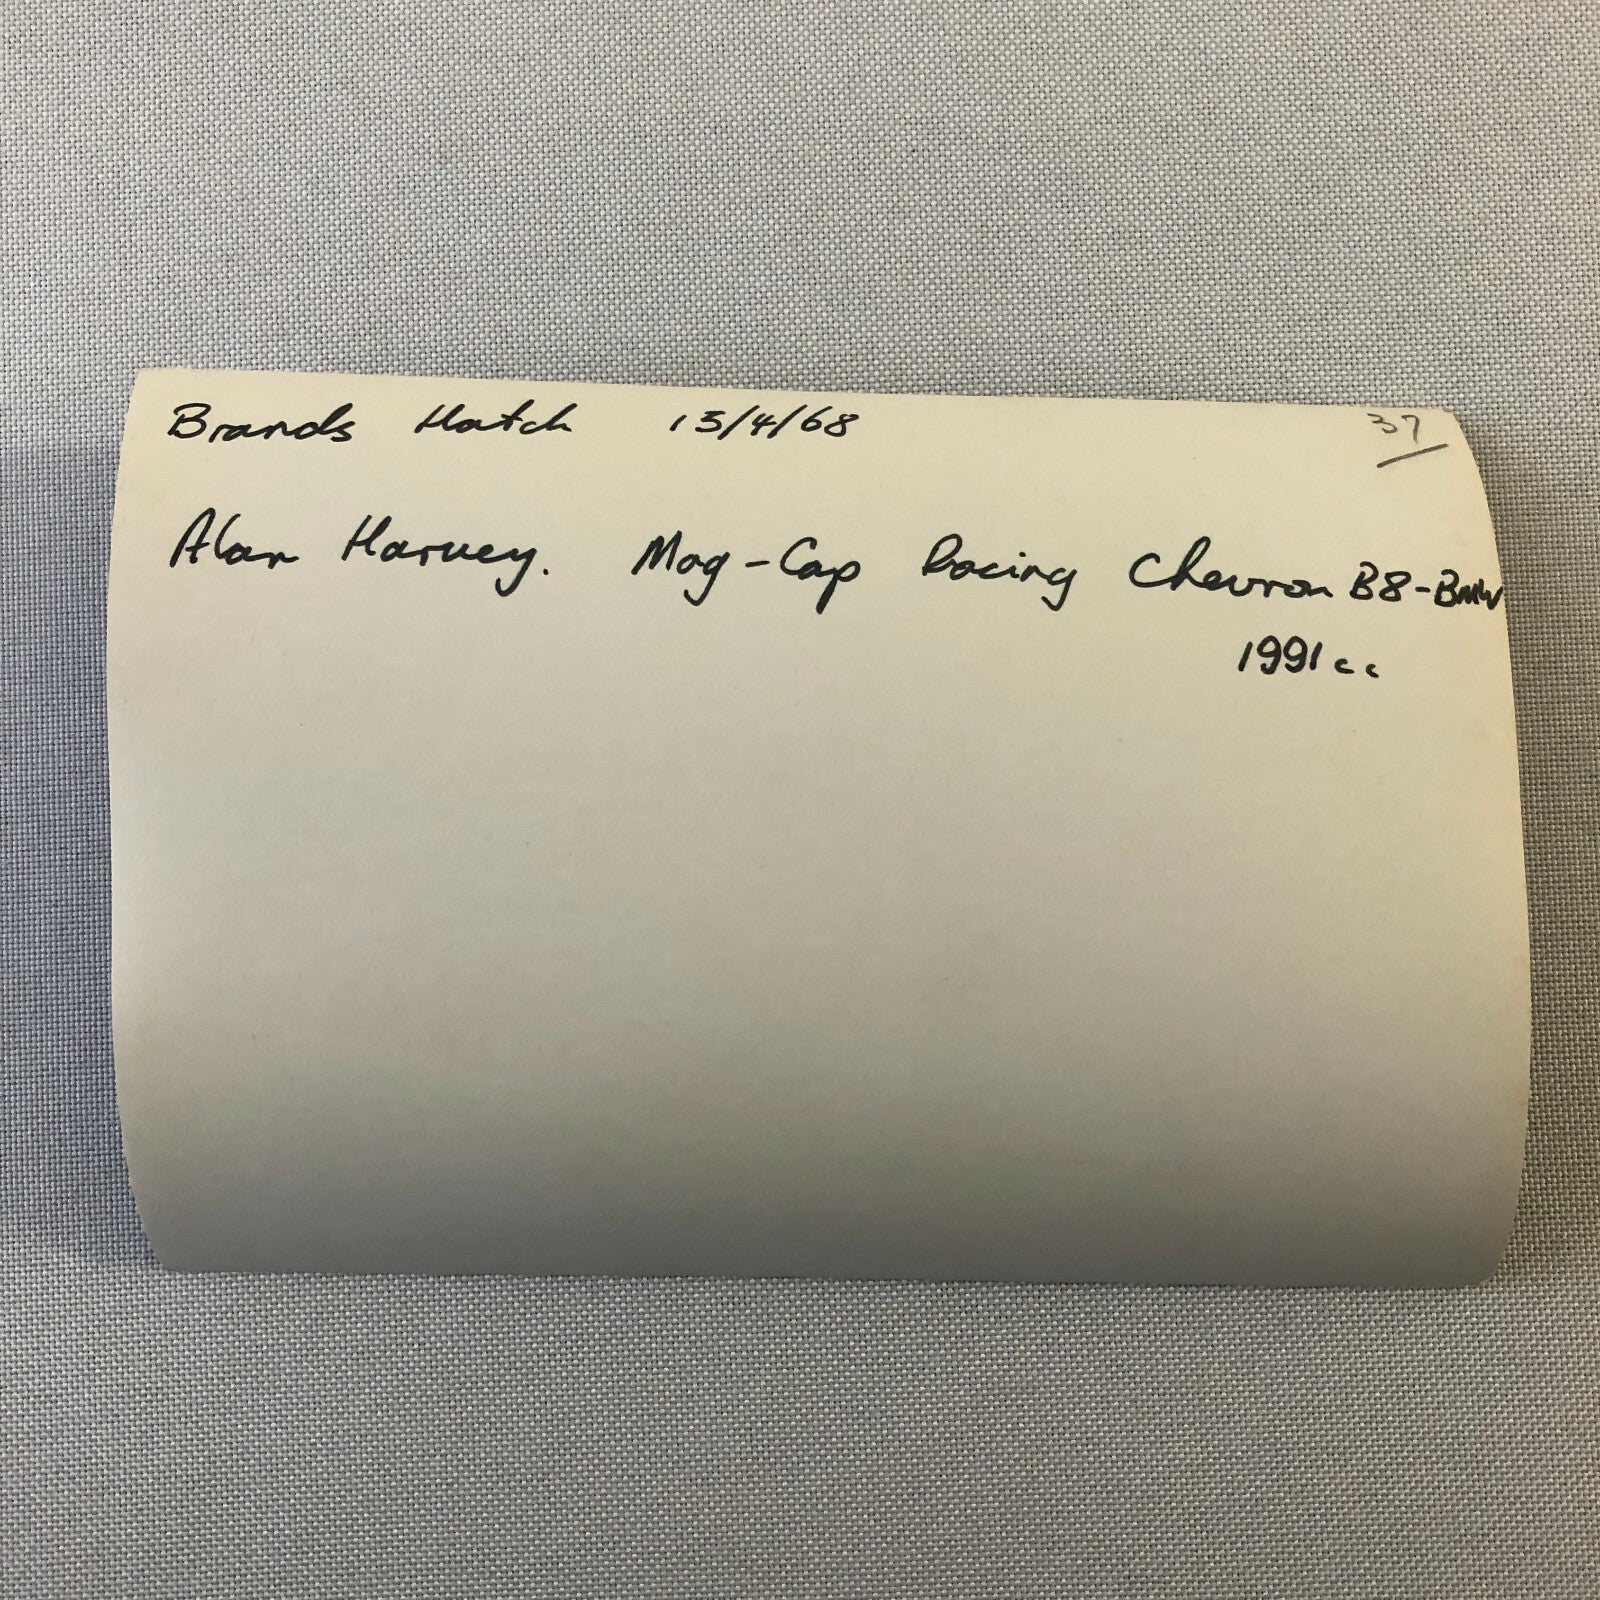 Brands Hatch 15/4/68 37
Alan Harvey. Mag-Cap Racing Chevron B8-BMW
1991cc